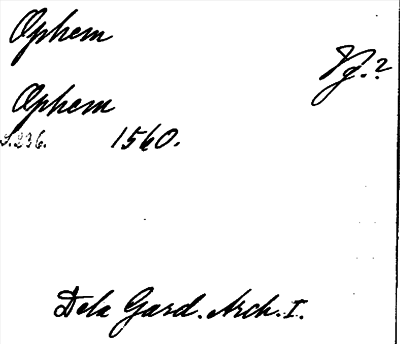 Ophem
Vg.?
Ophem
S.236. 1560.
Dela Gard. Arch. I.